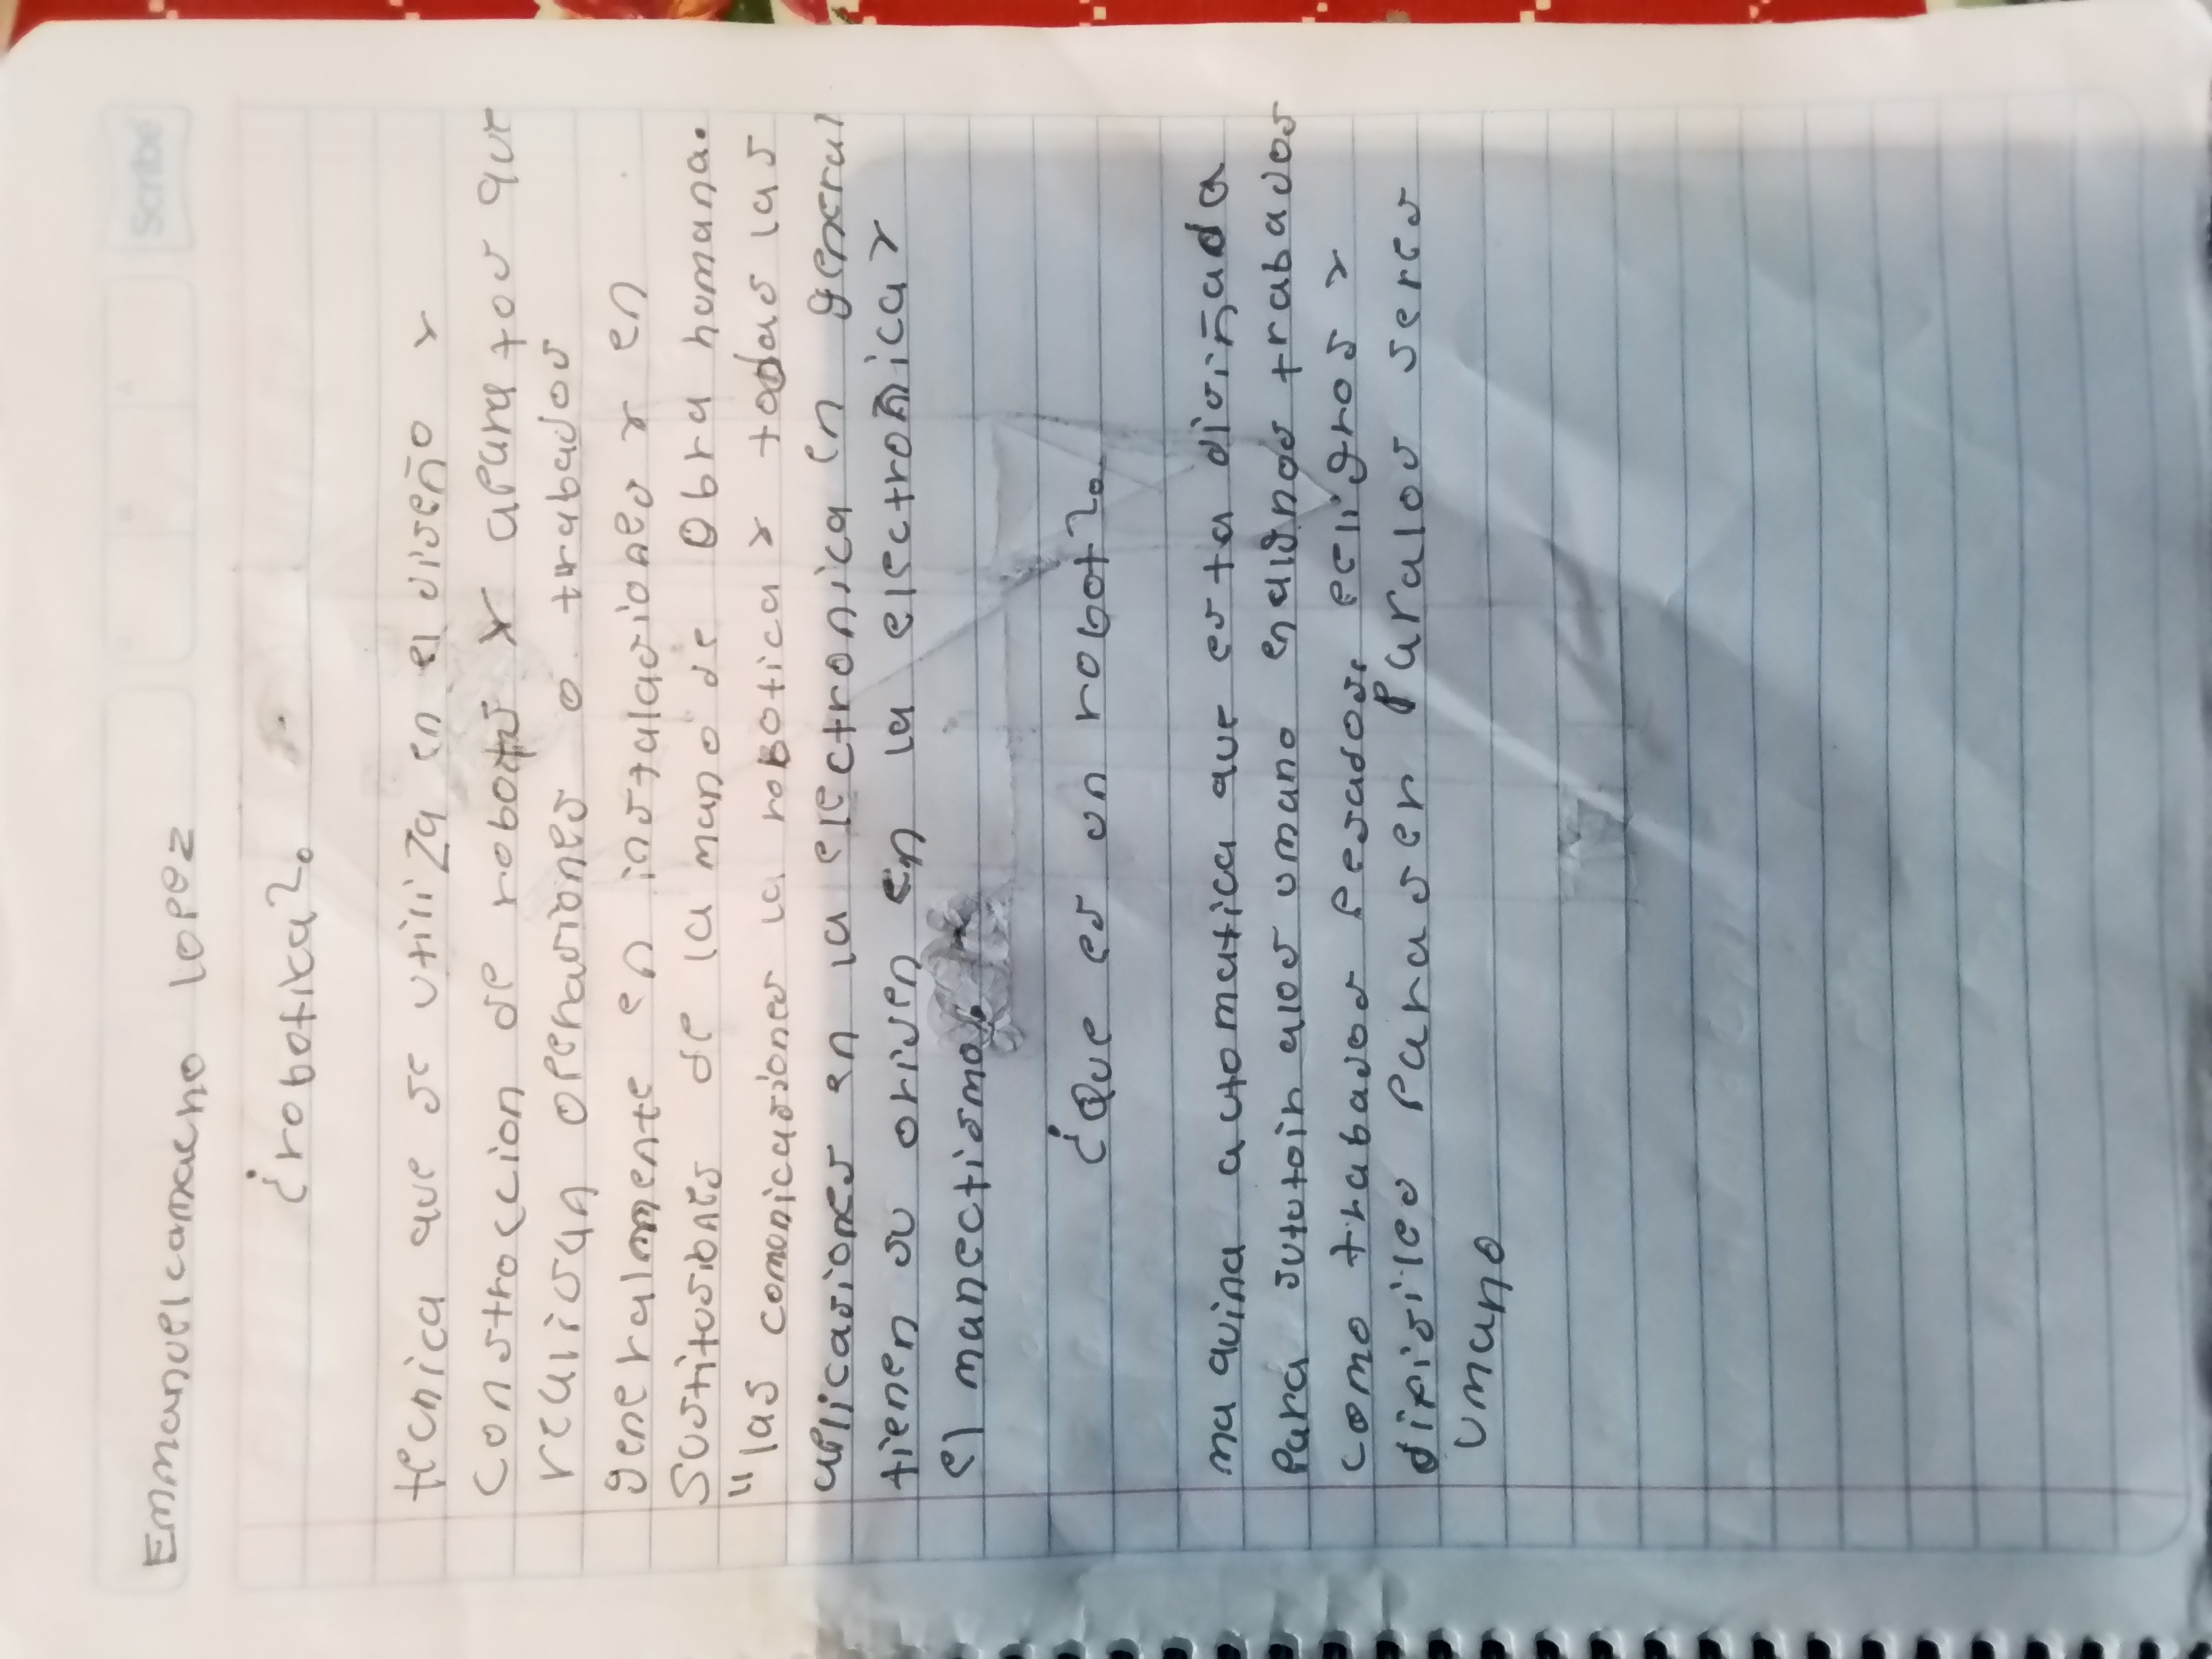 Scribe
Emmanuel camacho lopez
¿robotica?
tecnica que se utiliza en el diseño y
construccion de robots y aparatos que
realisan operasiones o trabajos
generalmente en instalasiones y en
sustitusiones de la mano de obra homana.
"las comonicasiones la robotica y todas las
aplicasiones en la electronica en general
tienen su orijen en la electronica y
el manectismo.
¿Que es un robot?
maquina automatica que esta disiñada
para sutuir alos umano enalgnos trabajos
como trabajos pesados, peligros y
dificiles para ser paralos seres
umano